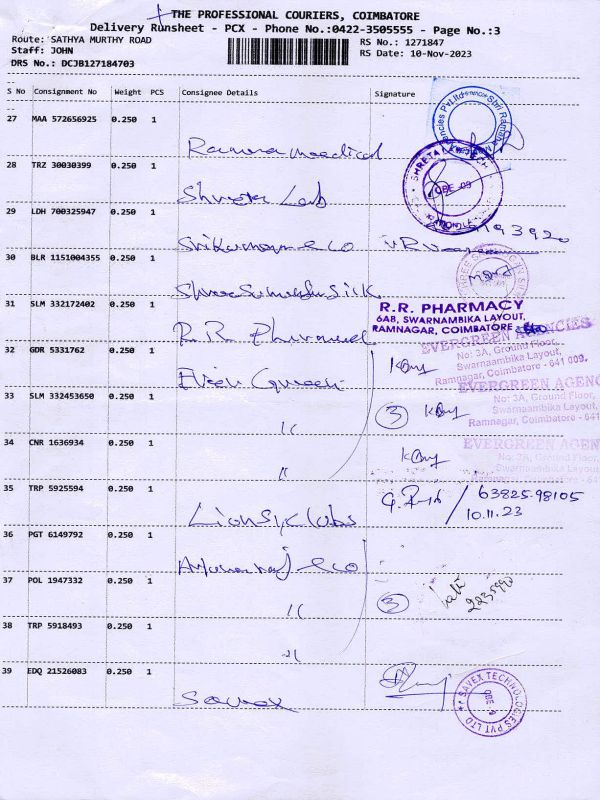 THE PROFESSIONAL COURIERS, COIMBATORE
Delivery Runsheet - PCX - Phone No.:0422-3505555 - Page No.:3
Route: SATHYA MURTHY ROAD
RS No.: 1271847
Staff: JOHN
RS Date: 10-Nov-2023
DRS No.: DCJB127184703
S No Consignment No Weight PCS Consignee Details Signature
27 MAA 572656925 0.250 1
Ramna medical
28 TRZ 30030399 0.250 1
Shreta Lab
29 LDH 700325947 0.250 1
30 BLR 1151004355 0.250 1
31 SLM 332172402 0.250 1
R.R. PHARMACY
6AB, SWARNAMBIKA LAYOUT,
RAMNAGAR, COIMBATORE
R.R.
32 GDR 5331762 0.250 1
EVERGREEN AGENCIES
No: 3A, Ground Floor,
Swarnaambika Layout,
Ramnagar, Coimbatore - 641 009.
33 SLM 332453650 0.250 1
EVERGREEN AGEN
No: 3A, Ground Floor,
Swarnaambika Layout,
Ramnagar, Coimbatore - 641
3
"
34 CNR 1636934 0.250 1
EVERGREEN AGEN
No: 3A, Ground Floor,
Swarnaambika Layou
"
35 TRP 5925594 0.250 1
63825-98105
10.11.23
Lions clubs
36 PGT 6149792 0.250 1
37 POL 1947332 0.250 1
3
2235990
"
38 TRP 5918493 0.250 1
"
39 EDQ 21526083 0.250 1
Savex
SAVEX TECHNOLOGIES PVT LTD
CBE